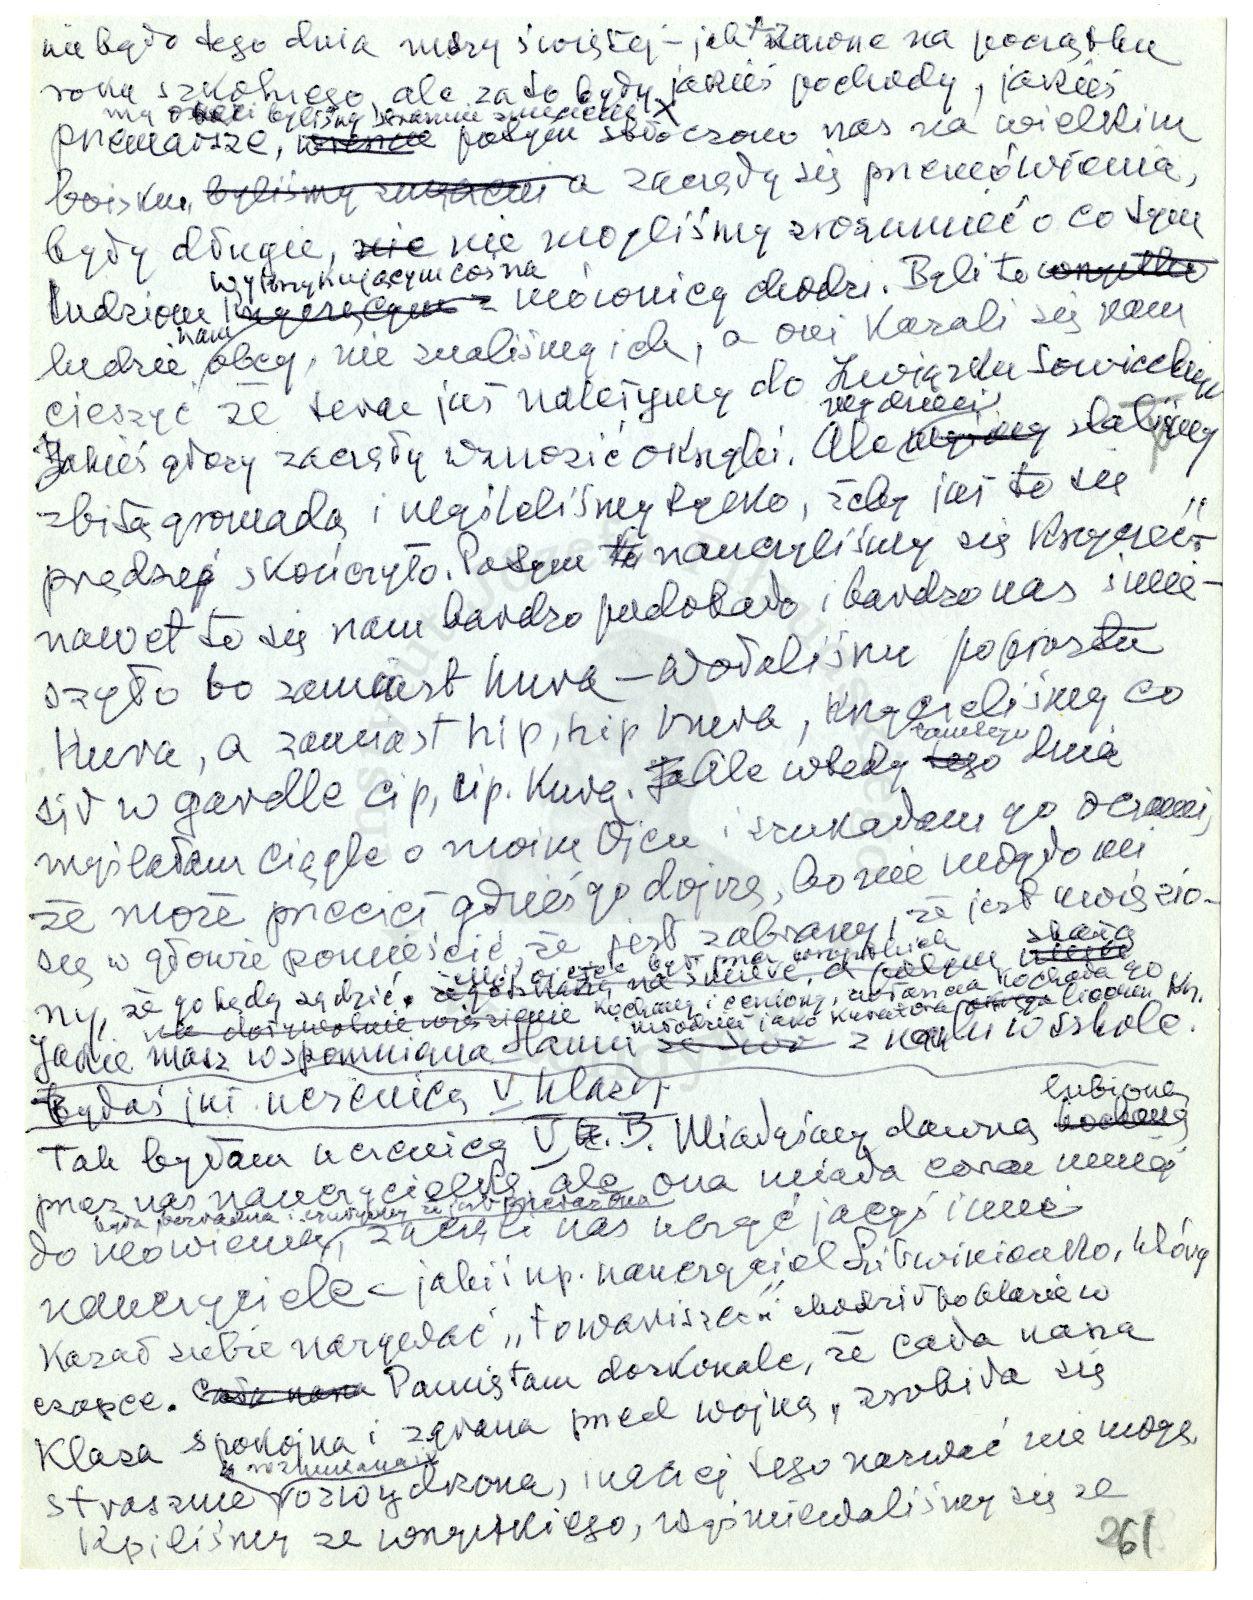 nie było tego dnia mszy świętej – jak zawsze na początku
roku szkolnego, ale za to były jakieś pochody, jakieś
my byliśmy strasznie zmęczeni
przemarsze, potym stłoczono nas na wielkim
boisku, byliśmy zmęczeni a zaczęły się przemówienia,
były długie, nie nie mogliśmy zrozumieć o co tym
wykrzykującym coś na
ludziom krzyczącym z mównicy chodzi. Byli to wszystko
nam
ludzie obcy, nie znaliśmy ich, a oni kazali się nam
cieszyć że teraz już należymy do Związku Sowieckiego
Jakieś głosy zaczęły wznosić okrzyki. Ale staliśmy
zbitą gromadą i myśleliśmy tylko, żeby już to się
prędzej skończyło. Potym nauczyliśmy się krzyczeć –
nawet to się nam bardzo podobało i bardzo nas śmie-
szyło bo zamiast hura – wołaliśmy poprostu
kura, a zamiast hip, hip hura, krzyczeliśmy co
tamtego
sił w gardle cip, cip. Kura. Ale wtedy tego dnia
myślałam ciągle o moim Ojcu i szukałam go oczami,
że może przecież gdzieś go dojrzę, bo nie mogło mi
się w głowie pomieścić, że jest zabrany, że jest uwięzio-
ny, że go będą sądzić.
kochany i ceniony, kochała go
młodzież jako Kuratora
Jakie masz wspomnienia Haniu z nauki w szkole.
Byłaś już uczenicą V klasy
lubioną
Tak byłam uczenicą V B. Miałyśmy dawną kochaną
przez nas nauczycielkę ale ona miała coraz mniej
do mówienia, zaczęli nas uczyć jacyś inni
nauczyciele – jakiś np. nauczyciel który
kazał siebie nazywać „towariszcz" chodził po klasie w
czapce. Cała nasza Pamiętam doskonale, że cała nasza
klasa spokojna i zgrana przed wojną, zrobiła się
strasznie rozwydrzona, inaczej tego nazwać nie mogę.
Kpiliśmy ze wszystkiego, wyśmiewaliśmy się ze
261